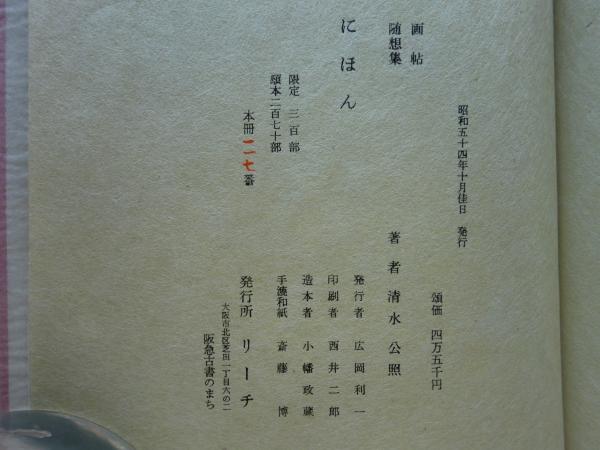 昭和五十四年十月佳日 発行
頒価 四万五千円
画帖
随想集
にほん
著者 清水公照
限定 三百部
頒本二百七十部
本冊一一七番
発行者 広岡利一
印刷者 西井二郎
造本者 小幡政蔵
手漉和紙 斎藤博
発行所 リーチ
大阪市北区芝田一丁目六の二
阪急古書のまち